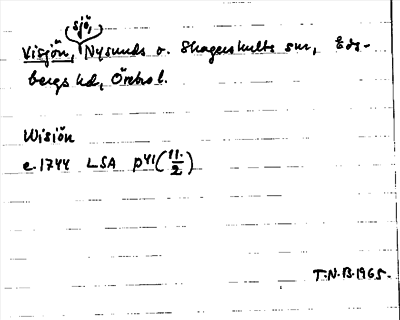 sjö,
Visjön, Nysunds o. Skagershults snr, Eds-
bergs hd, Örebro l.
Wisiön
c. 1744 LSA P41 (11/2)
T.N.B. 1965.